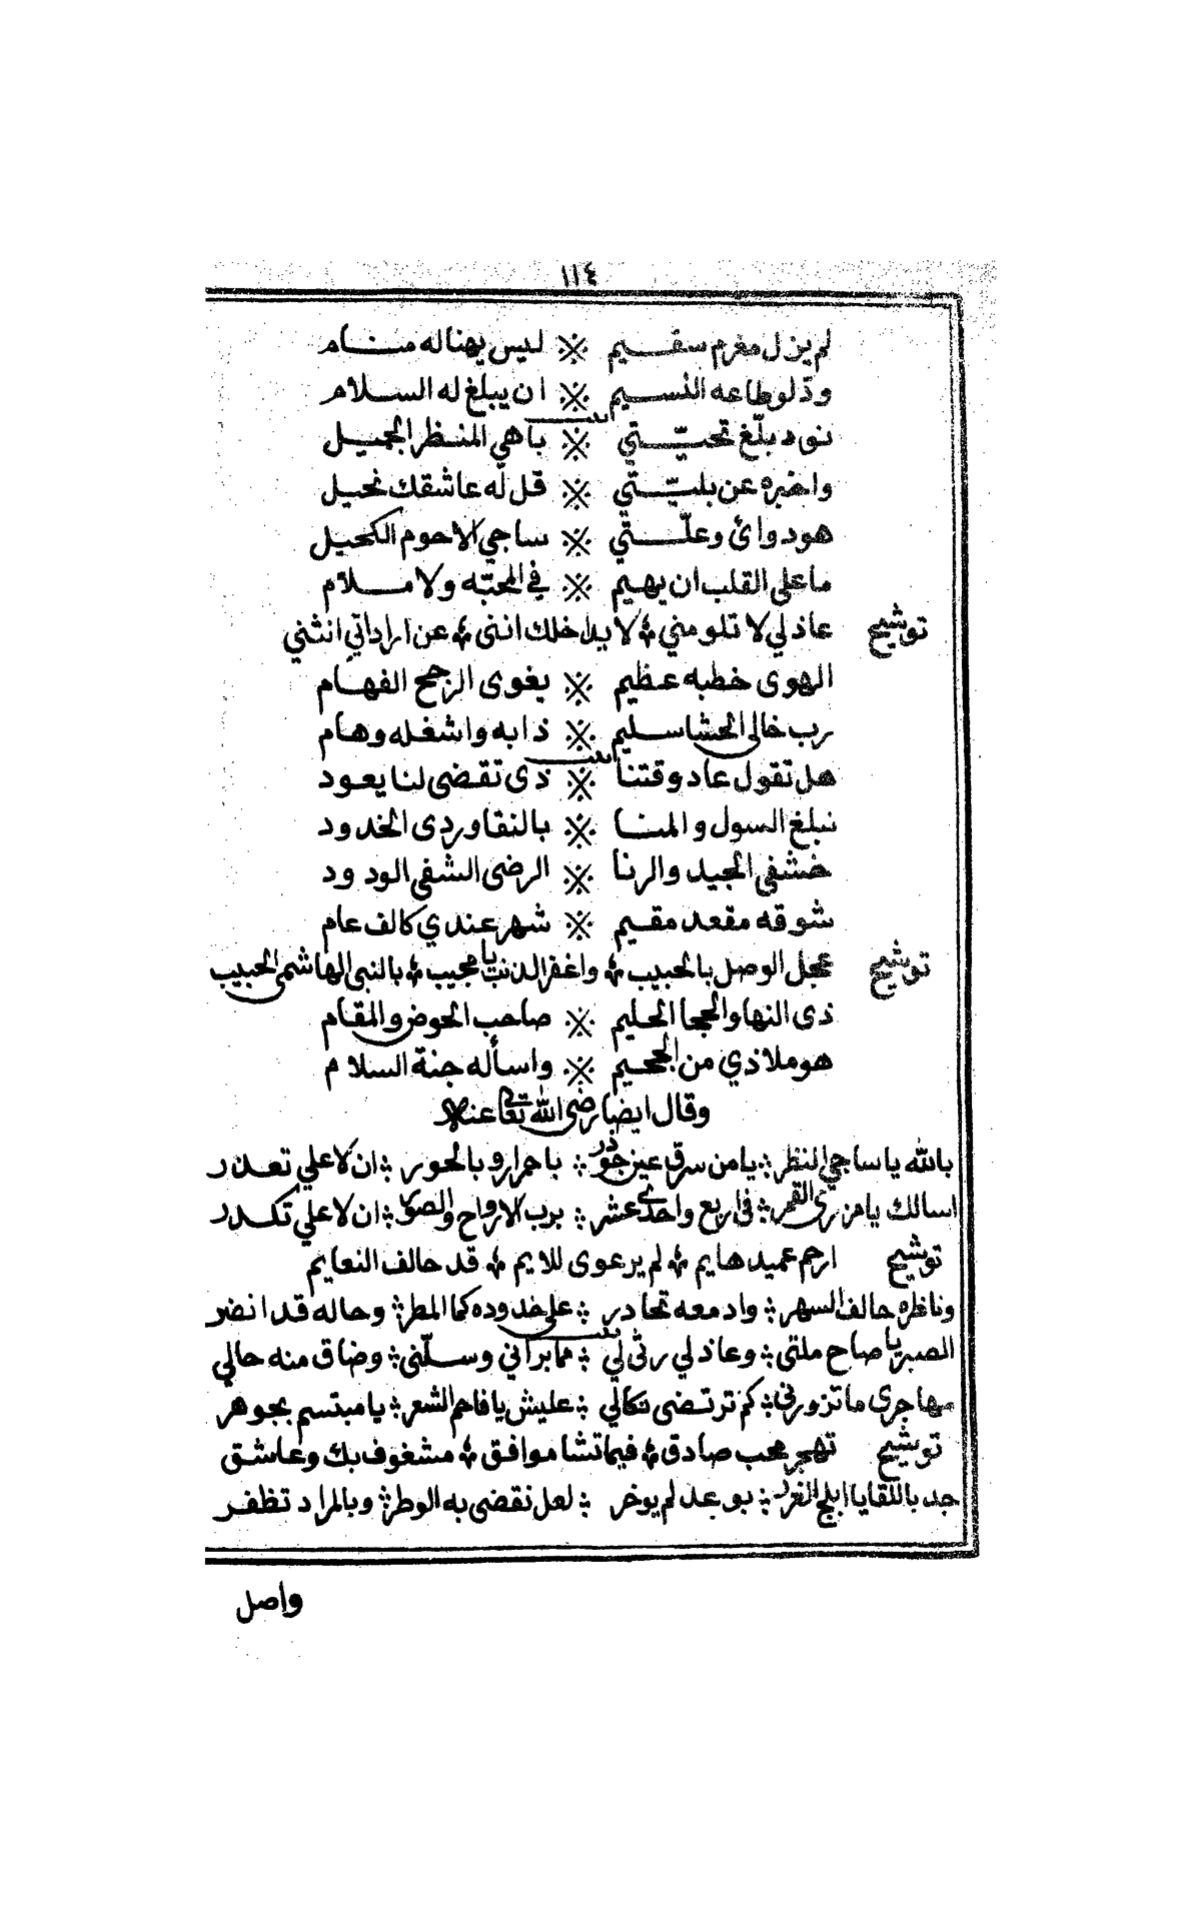 ١١٤
لم يزل مغرم سقيم ※ ليس يهناله منام
ودّ لوطاعه النسيم ※ ان يبلغ له السلام
بيت
نود بلّغ تحيّتي ※ باهي المنظر الجميل
واخبره عن بليّتي ※ قل له عاشقك نحيل
هودوائ وعلّتي ※ ساجي الاحوم الكحيل
ماعلى القلب ان يهيم ※ في المحبّه ولا ملام
توشيح عاذلي لا تلومني ؞ لا يداخلك انني ؞ عن اراداتي انثني
الهوى خطبه عظيم ※ يغوى الرجح الفهام
رب خالى الحشا سليم ※ ذابه واشغله وهام
بيت
هل تقول عاد وقتنا ※ ذى تقضى لنا يعود
نبلغ السول والمنا ※ بالنقا وردى الخدود
خشفي الجيد والرنا ※ الرضى الشفى الودود
شوقه مقعد مقيم ※ شهر عندي كالف عام
توشيح عجل الوصل بالحبيب ؞ واغفر الذنب يا مجيب ؞ بالنبى الهاشمى الحبيب
ذى النها والحجا الحليم ※ صاحب الحوض والمقام
هو ملاذي من الجحيم ※ واسأله جنة السلام
وقال ايضا رضى الله تعالى عنه
بالله يا ساجي النظر ؞ يا من سرق عين جؤذر ؞ باحمرار وبالحور ؞ ان لا علي تعذر
اسالك يا مزرى القمر ؞ فى اربع واحدى عشر ؞ برب الارواح والصور ؞ ان لا علي تكدر
توشيح ارحم عميد هايم ؞ لم يرعوى للايم ؞ قد حالف النعايم
وناظره حالف السهر ؞ وادمعه تحادر ؞ على خدوده كما المطر ؞ وحاله قد انضر
بيت
الصبر يا صاح ملتى ؞ وعاذلي رثى لي ؞ مما براني وسلّنى ؞ وضاق منه حالي
مهاجرى ما تزورنى ؞ كم ترتضى نكالي ؞ عليش يا فاحم الشعر ؞ يا مبتسم بجوهر
توشيح تهجر محب صادق ؞ فيما تشا موافق ؞ مشغوف بك وعاشق
جد باللقا يا ابلج الغرر ؞ بوعد لم يوخر ؞ لعل نقضى به الوطر ؞ وبالمراد تظفر
واصل